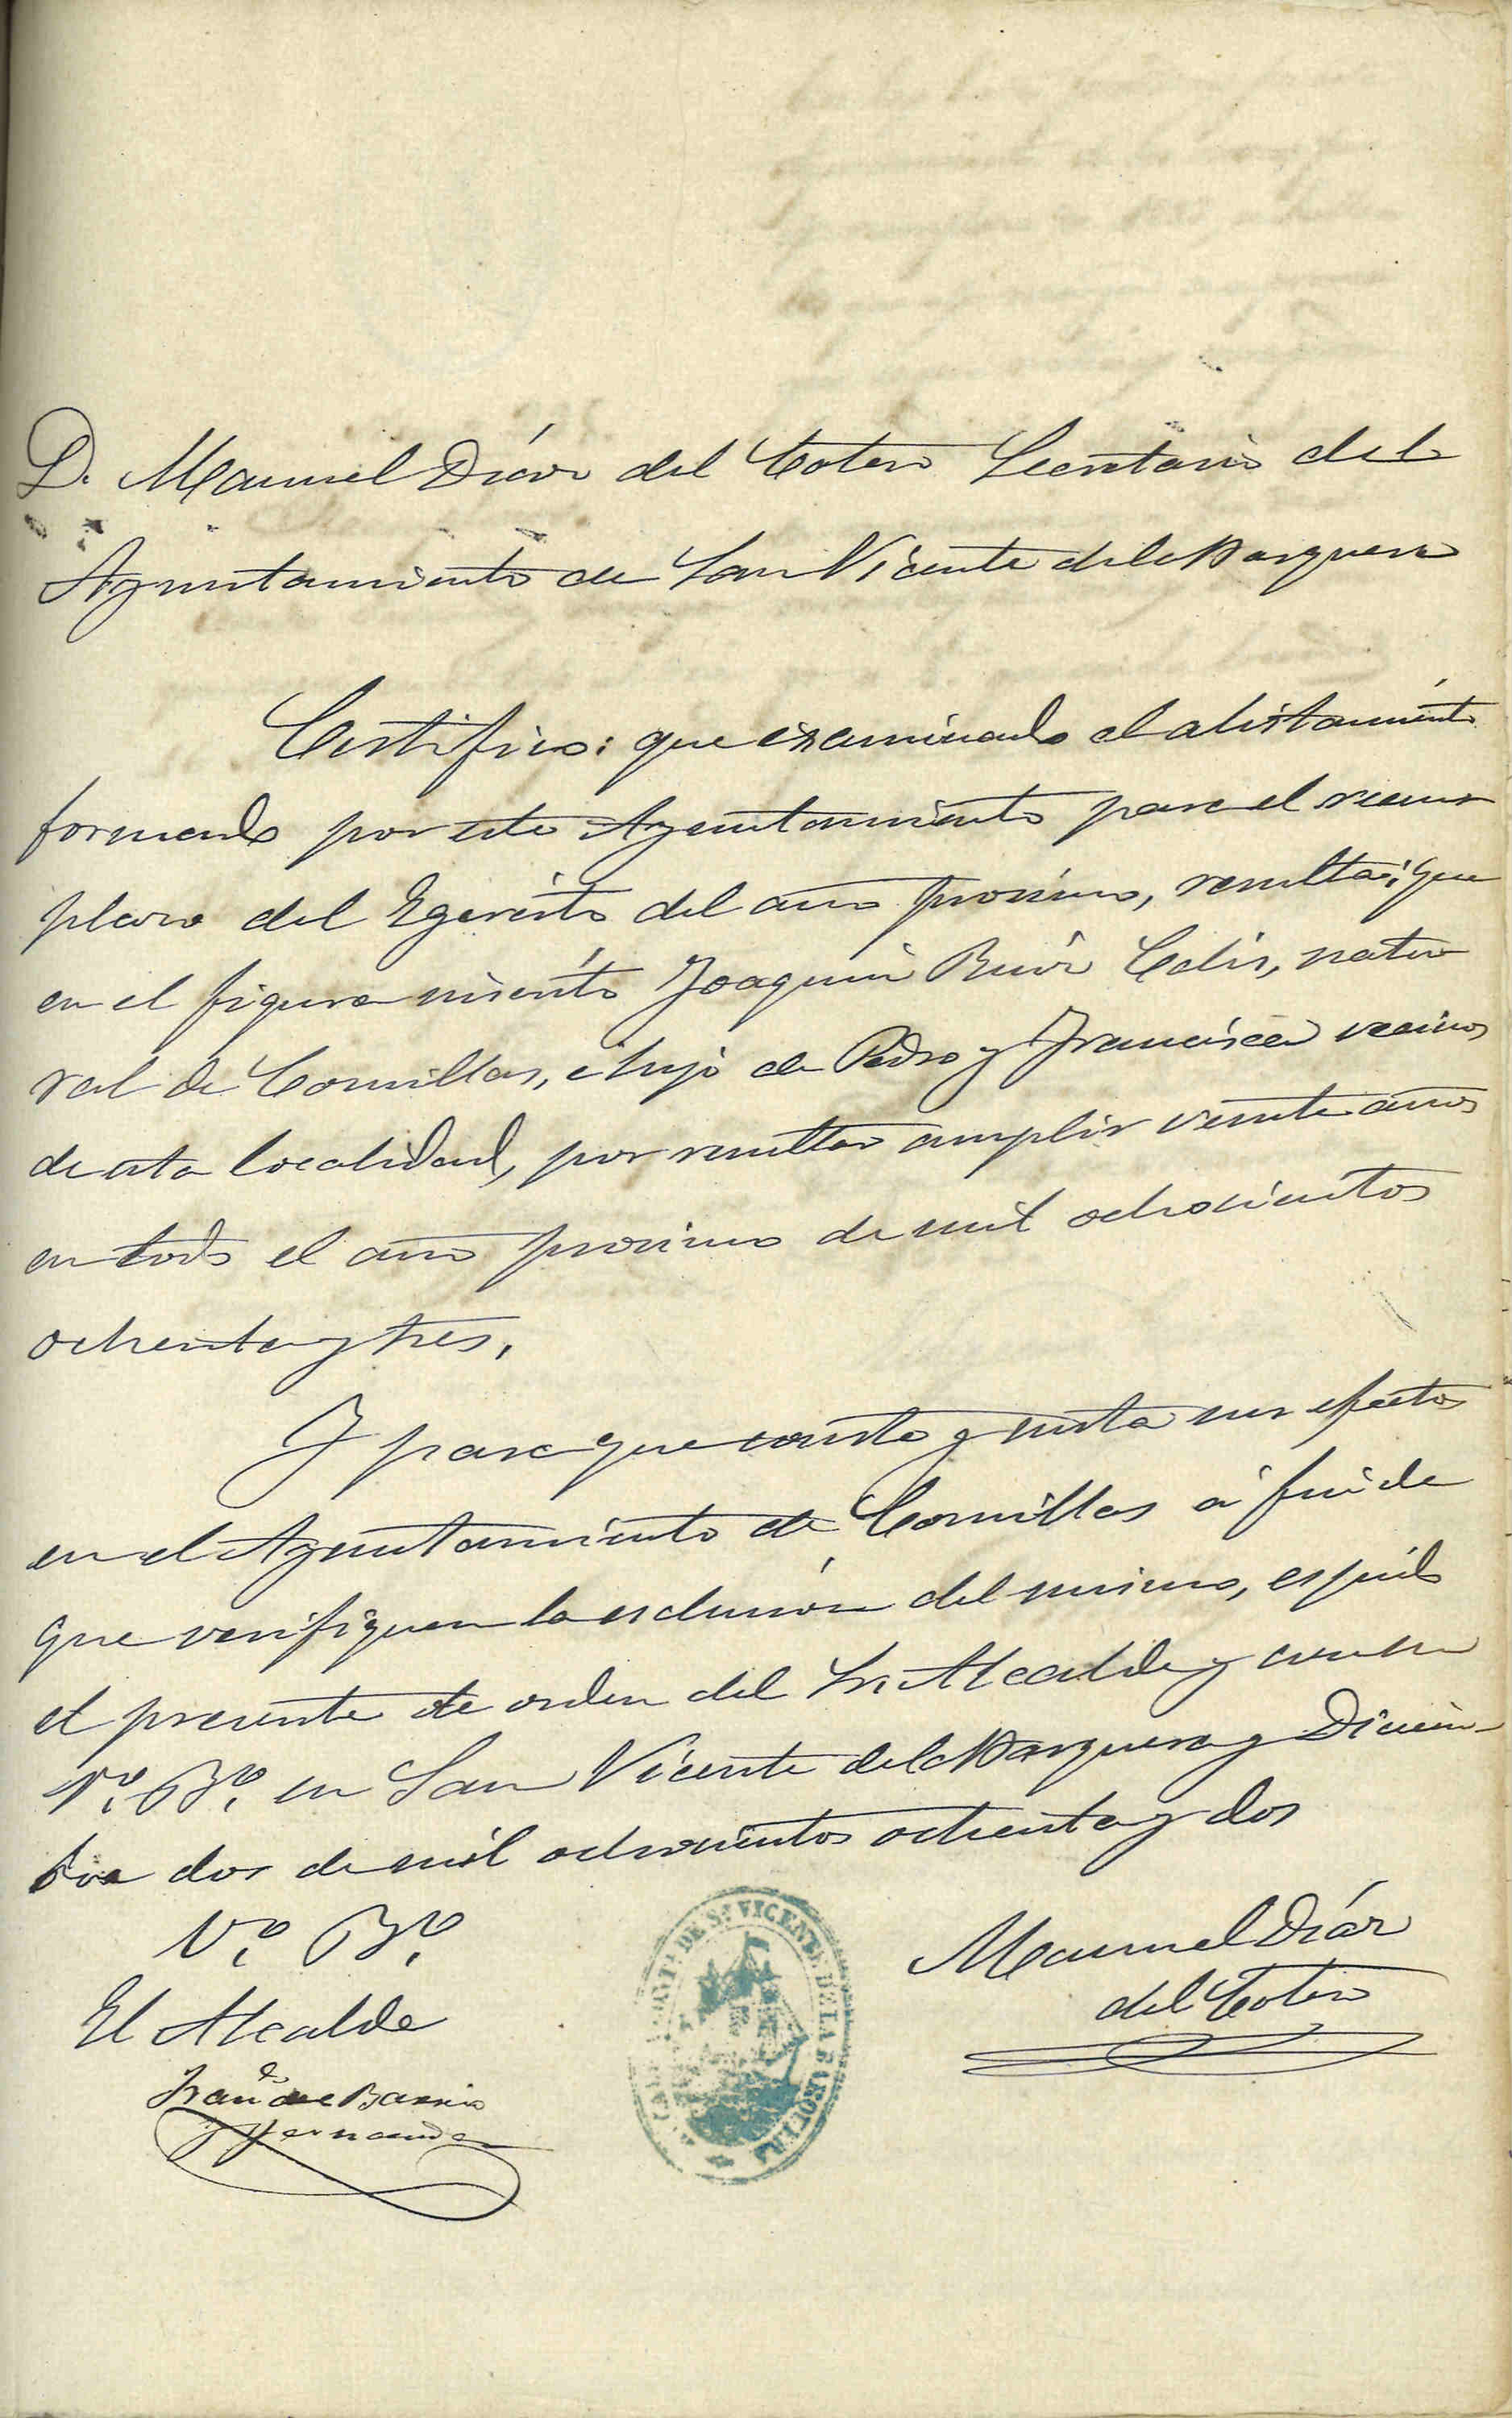 D. Manuel Díaz del Cotero Secretario del
Ayuntamiento de San Vicente de la Barquera
Certifico: que examinado el alistamiento
formado por este Ayuntamiento para el reem
plazo del Egército del año procsimo, resulta: que
en el figura inscrito Joaquin Ruiz Celis, natu
ral de Comillas, é hijo de Pedro y Francisca vecinos
de esta localidad, por resultar cumplir veinte años
en todo el año procsimo de mil ochocientos
ochenta y tres.
Y para que conste y surta sus efectos
en el Ayuntamiento de Comillas á fin de
que verifiquen la esclusión del mismo, espido
el presente de orden del Sr. Alcalde y con su
V.º B.º en San Vicente de la Barquera y Diciem-
bre dos de mil ochocientos ochenta y dos
V.º B.º
El Alcalde
Fran.co de Barrio
y Hernandez
Manuel Díaz
del Cotero
DE S.N VICENTE DE LA BARQUERA